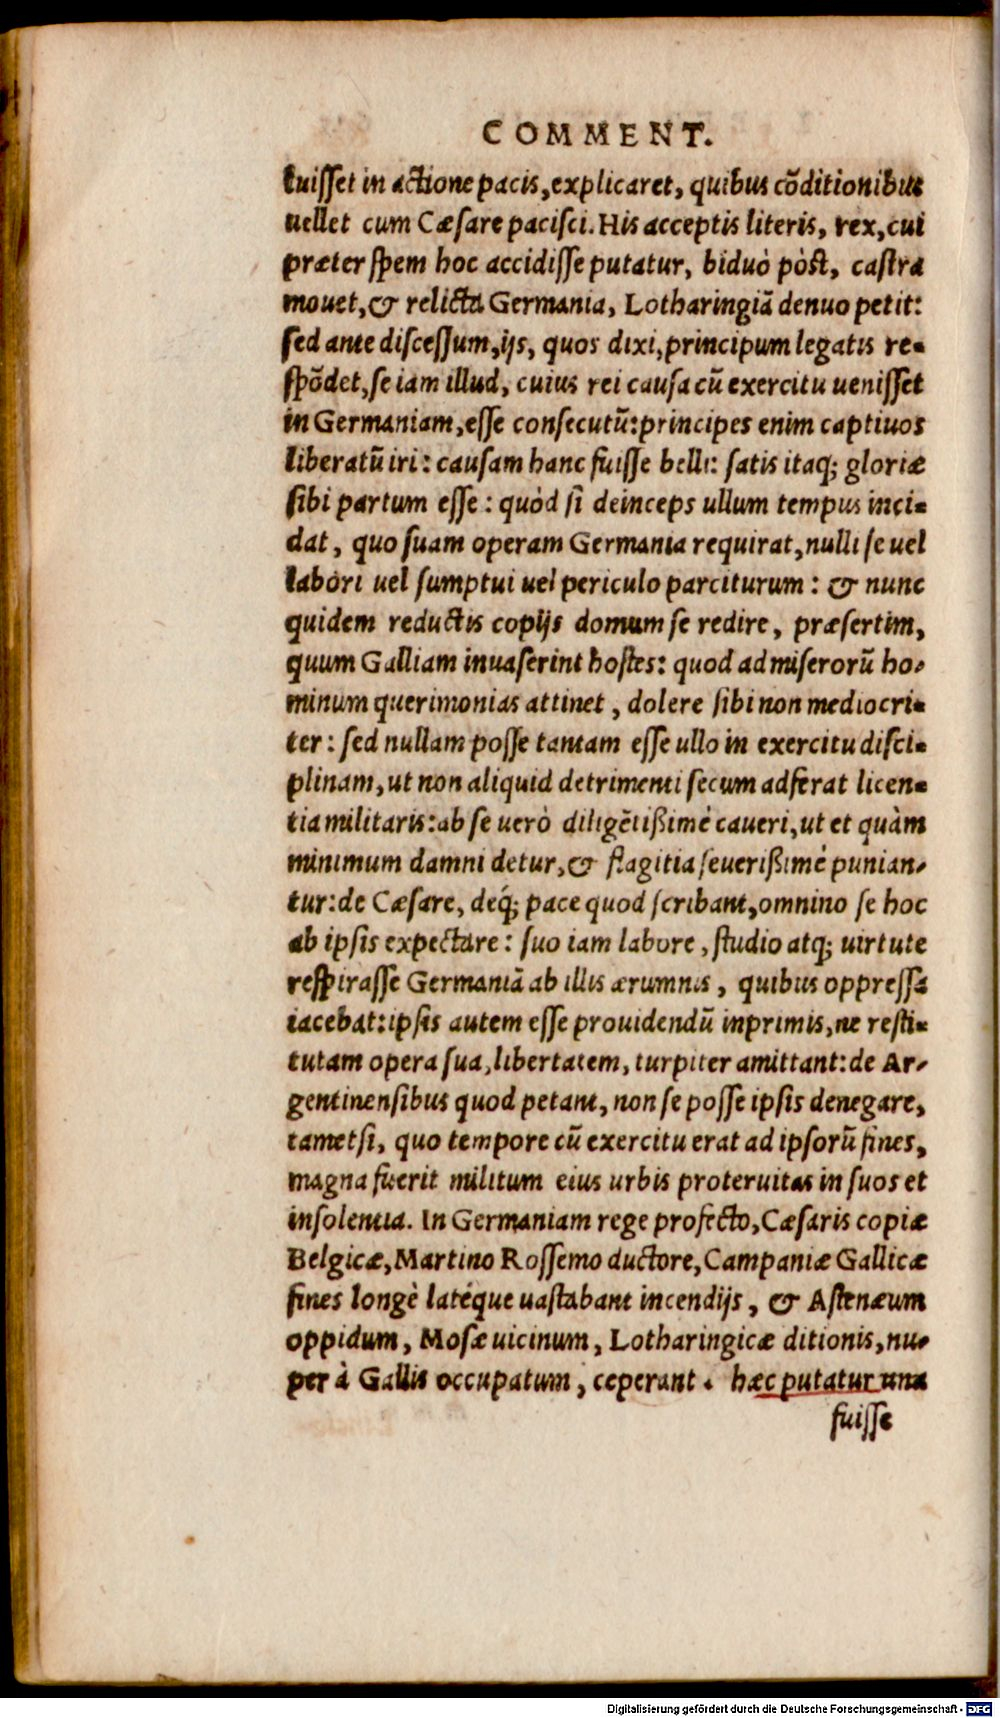 COMMENT.
tuisset in actione pacis, explicaret, quibus cõditionibus
uellet cum Cæsare pacisci. His acceptis literis, rex, cui
præter spem hoc accidisse putatur, biduò pòst, castra
mouet, & relicta Germania, Lotharingiã denuo petit:
sed ante discessum, ijs, quos dixi, principum legatis re-
spõdet, se iam illud, cuius rei causa cũ exercitu uenisset
in Germaniam, esse consecutũ: principes enim captiuos
liberatũ iri: causam hanc fuisse belli: satis itaq; gloriæ
sibi partum esse: quòd si deinceps ullum tempus inci-
dat, quo suam operam Germania requirat, nulli se uel
labori uel sumptui uel periculo parciturum: & nunc
quidem reductis copijs domum se redire, præsertim,
quum Galliam inuaserint hostes: quod ad miserorũ ho-
minum querimonias attinet, dolere sibi non mediocri-
ter: sed nullam posse tantam esse ullo in exercitu disci-
plinam, ut non aliquid detrimenti secum adferat licen-
tia militaris: ab se uerò diligẽtißimè caueri, ut et quàm
minimum damni detur, & flagitia seuerißimè punian-
tur: de Cæsare, deq́; pace quod scribant, omnino se hoc
ab ipsis expectare: suo iam labore, studio atq; uirtute
respirasse Germaniã ab illis ærumnis, quibus oppressa
iacebat: ipsis autem esse prouidendũ inprimis, ne resti-
tutam opera sua, libertatem, turpiter amittant: de Ar-
gentinensibus quod petant, non se posse ipsis denegare,
tametsi, quo tempore cũ exercitu erat ad ipsorũ fines,
magna fuerit militum eius urbis proteruitas in suos et
insolentia. In Germaniam rege profecto, Cæsaris copiæ
Belgicæ, Martino Rossemo ductore, Campaniæ Gallicæ
fines longè latéque uastabant incendijs, & Astenæum
oppidum, Mosæ uicinum, Lotharingicæ ditionis, nu-
per à Gallis occupatum, ceperant. hæc putatur una
fuisse
Digitalisierung gefördert durch die Deutsche Forschungsgemeinschaft - DFG